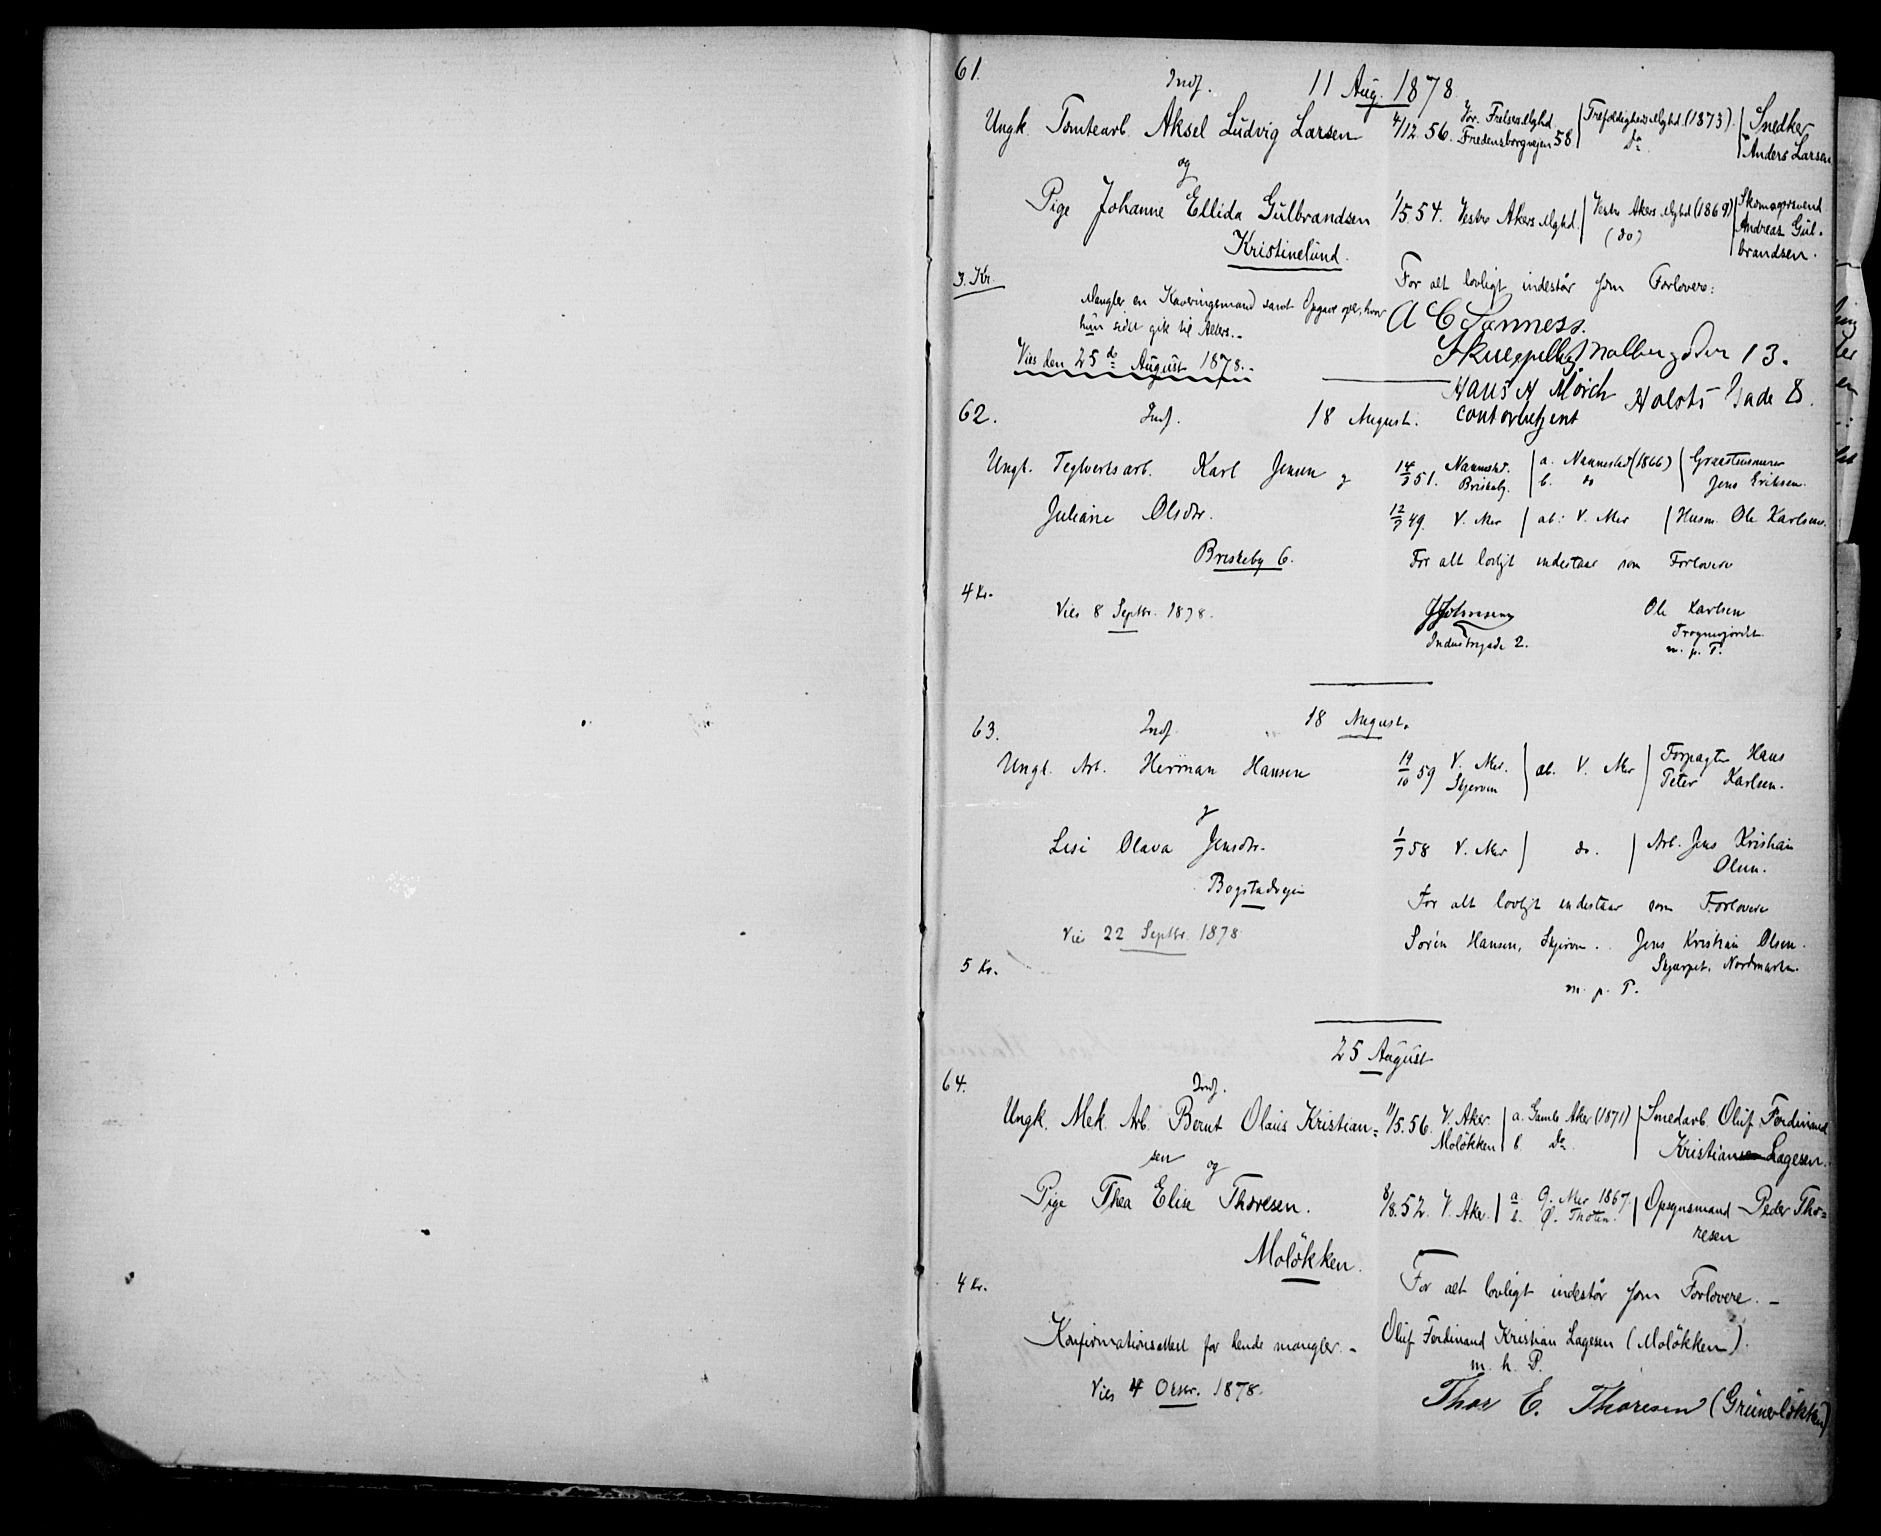 61.
Indf. 11 Aug. 1878
Ungk. Tomtearb. Aksel Ludvig Larsen 4/12. 56. Vor Frelsers Mghd. Trefoldigheds Mghd. (1873). Snedker
Fredensborgvejen 58. do Anders Larsen
og
Pige Johanne Ellida Gulbrandsen 1/5. 54. Vestre Akers Mghd. Vestre Akers Mghd (1869) Skomagersvend
(do) Andreas Gul-
Kristinelund. brandsen.
3. Kr. For alt lovligt indestår som Forlovere:
Mangler en Kaveringsmand samt Opgave over, hvor
hun sidst gik til Alters.-
A C Sanness.
13.
Vies den 25de August 1878.-
Hans H Mörch Holsts Gade 8.
contorbetjent
62. Indf. 18 August.
Ungk. Teglverksarb. Karl Jensen g 14/9 51. Nannestd. a. Nannestad (1866) Graastensmurer
Briskeby. b. do Jens Eriksen.
Juliane Olsdtr. 12/9 49. V. Aker ab: V. Aker Husm. Ole Karlsen.
Briskeby 6. For alt lovligt indestaar som Forlovere
4 Kr.
Vies 8 Septbr. 1878. J Johnsen Ole Karlsen
Industrigade 2. Frognerjordet
m. p. P.
63. Indf. 18 August.
Ungk. Arb. Herman Hansen 19/10 59 V. Aker. ab. V. Aker Forpagter Hans
Skjerven Peter Karlsen.
g
Lise Olava Jensdtr. 1/7 58 V. Aker do. Arb. Jens Kristian
Olsen.
Bogstadvejen
For alt lovligt indestaar som Forlovere
Vies 22 Septbr. 1878
Sören Hansen, Skjerven. Jens Kristian Olsen.
5 Kr. Nordmarken.
m. p. P.
25 August
64. Indf.
Ungk. Mek. Arb. Bernt Olaus Kristian= 11/5. 56. V. Aker. a. Gamle Aker (1871) Smedarb. Oluf Ferdinand
Moløkken b. do Kristiansen Lagesen.
sen og
Pige Thea Elise Thoresen. 8/8. 52. V. Aker. a. G. Aker 1867 Opsynsmand Peder Tho=
b. Ø. Thoten. resen
Moløkken.
4 Kr. For alt lovligt indestår som Forlovere. -
Konfirmationsattest for hende mangler. - Oluf Ferdinand Kristian Lagesen (Moløkken).
m. h. P.
Vies 4 Oktbr. 1878. Thor E. Thoresen (Grünerløkken)